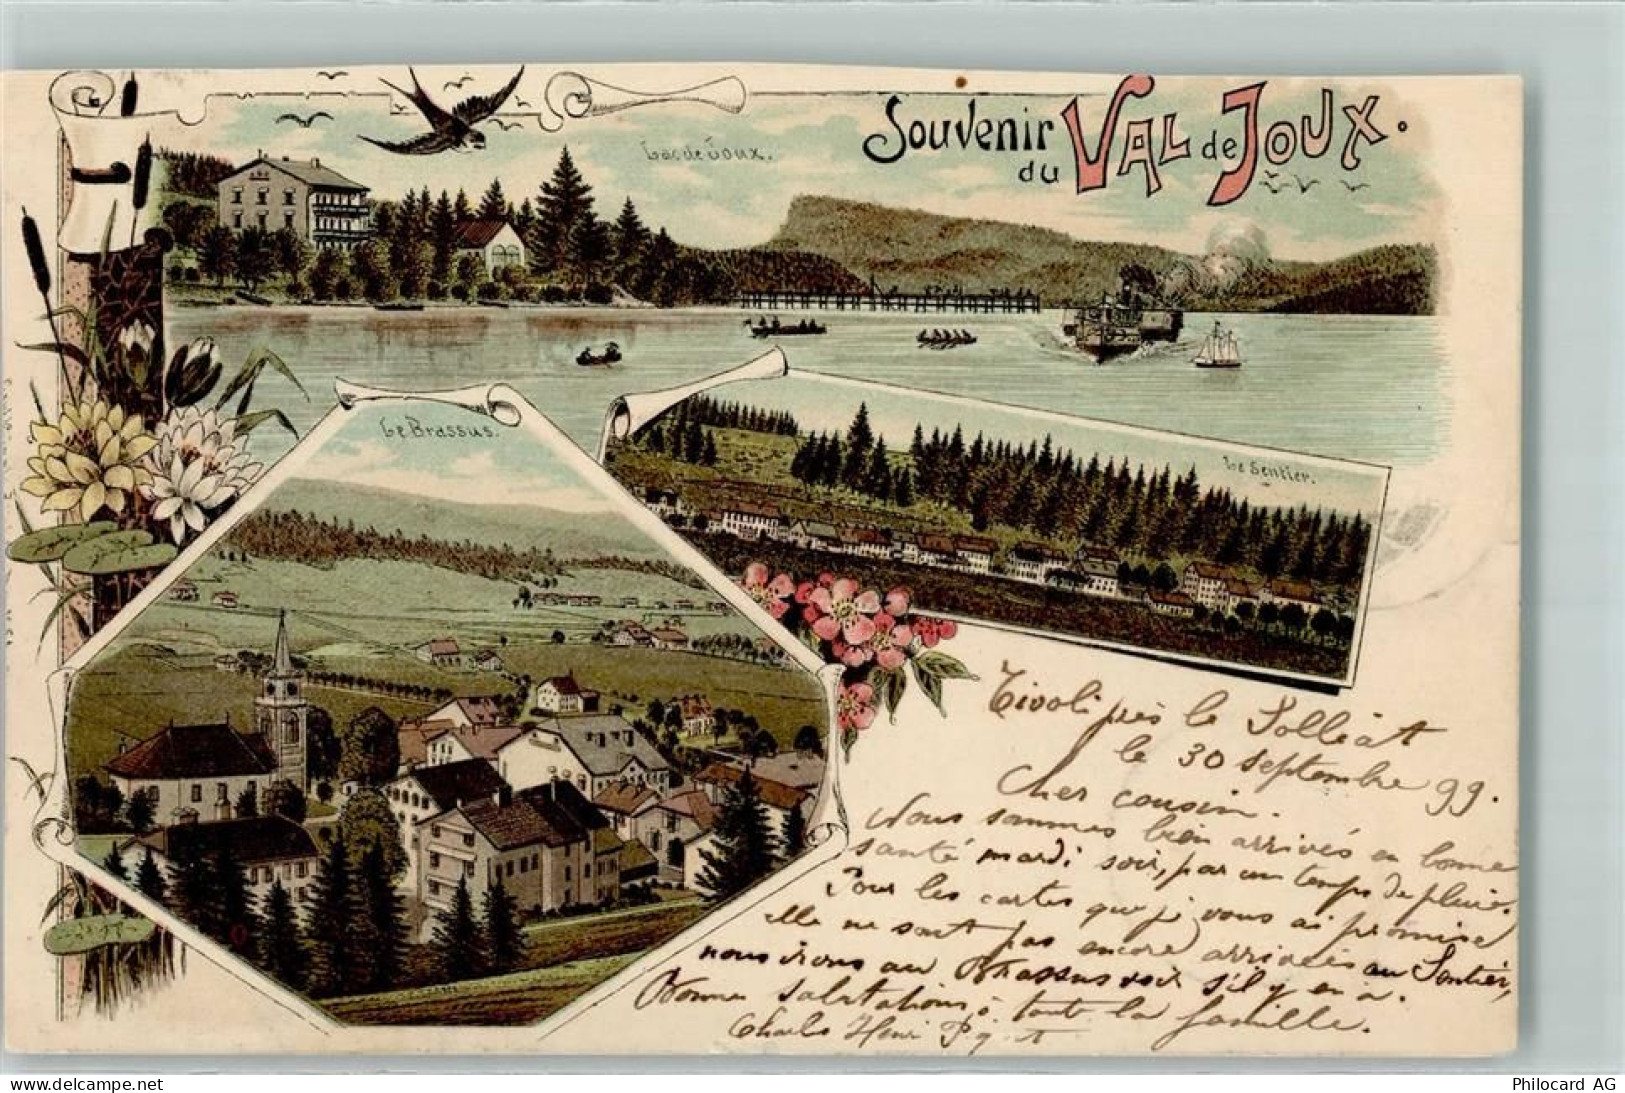 Souvenir
du Val de Joux.
Lac de Joux.
Le Brassus.
Le Sentier.
Tivoli près le Solliat
le 30 septembre 99.
Cher cousin.
Nous sommes bien arrivés en bonne
santé mardi soir, par un temps de pluie.
Pour les cartes que je vous ai promise
elle ne sont pas encore arrivées au Sentier,
nous irons au Brassus voir s'il y en a.
Bonnes salutations à toute la famille.
Charles Henri
Philocard AG